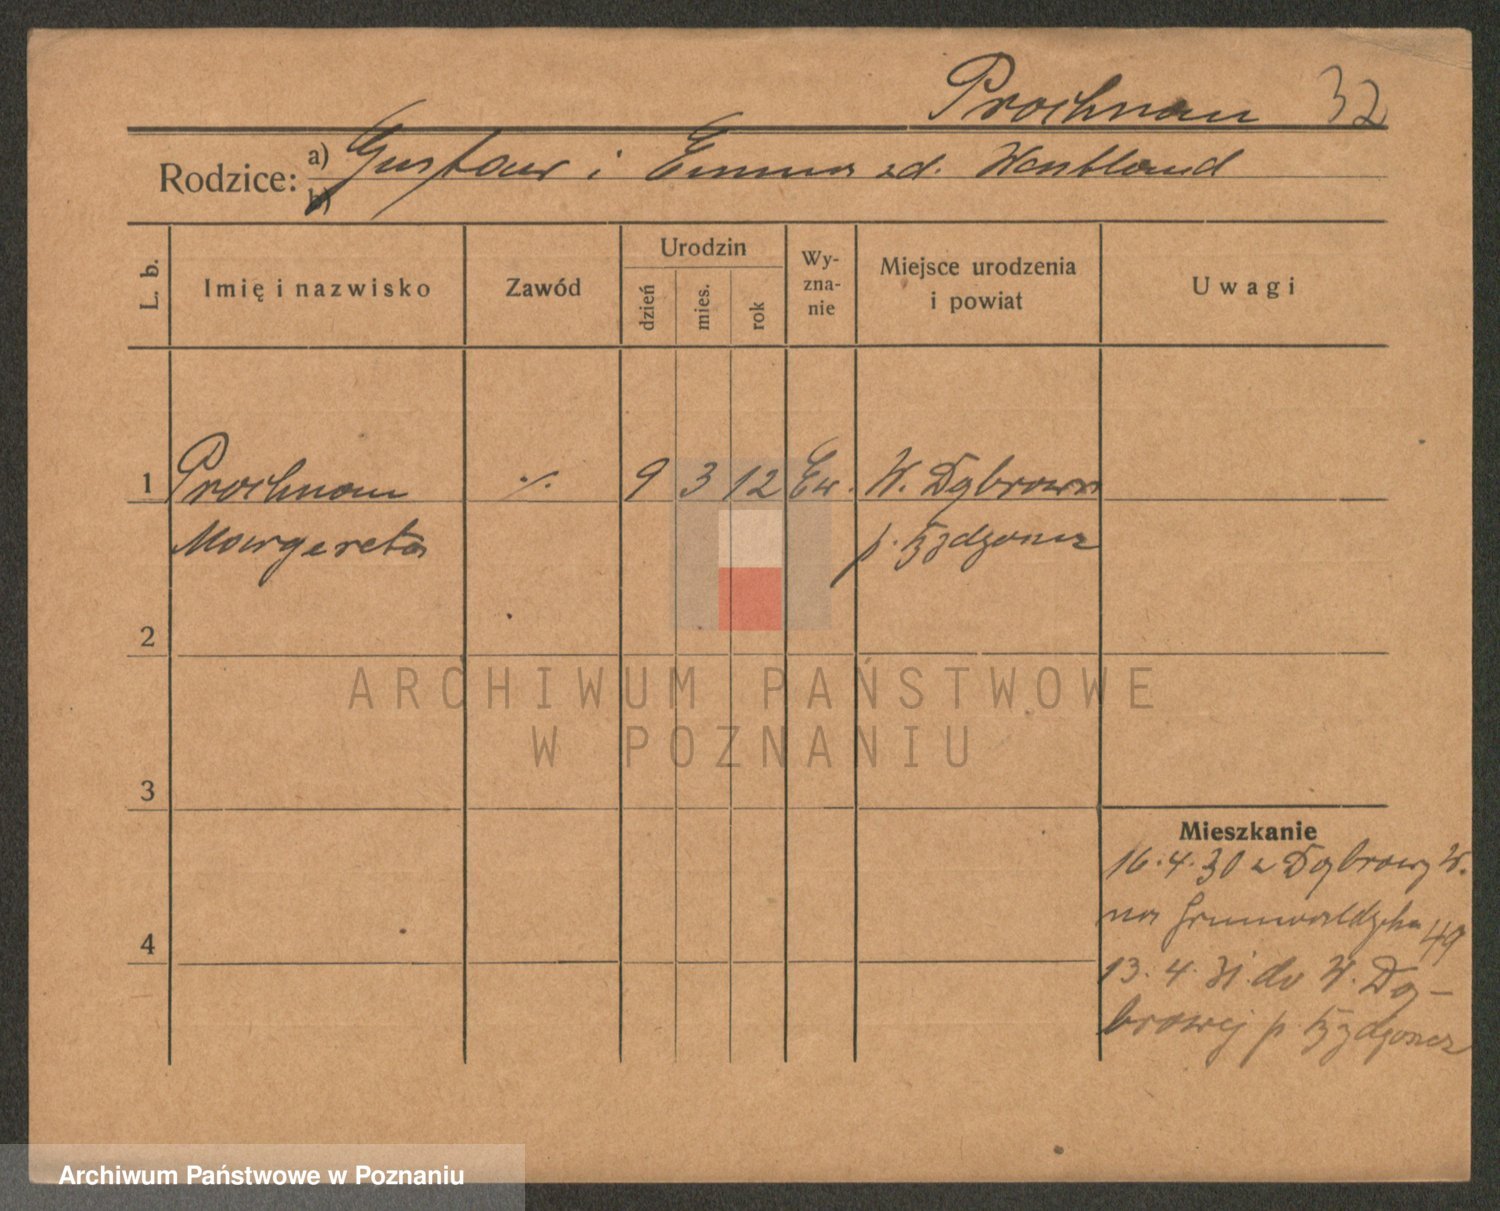 Prochnau 32
Rodzice: a) Gustaw i Emma zd. Westbland
b)
L. b.
Imię i nazwisko
Zawód
Urodzin
dzień
mies.
rok
Wy-
zna-
nie
Miejsce urodzenia
i powiat
Uwagi
1 Prochnau ./. 9 3 12 Ew. W. Dąbrowa
Margereta p. Bydgoszcz
2
3
4
Mieszkanie
16.4.30 z Dąbrowy W.
na Grunwaldzka 49
13.4.31. do W. Dą-
browej p. Bydgoszcz
ARCHIWUM PAŃSTWOWE
W POZNANIU
Archiwum Państwowe w Poznaniu